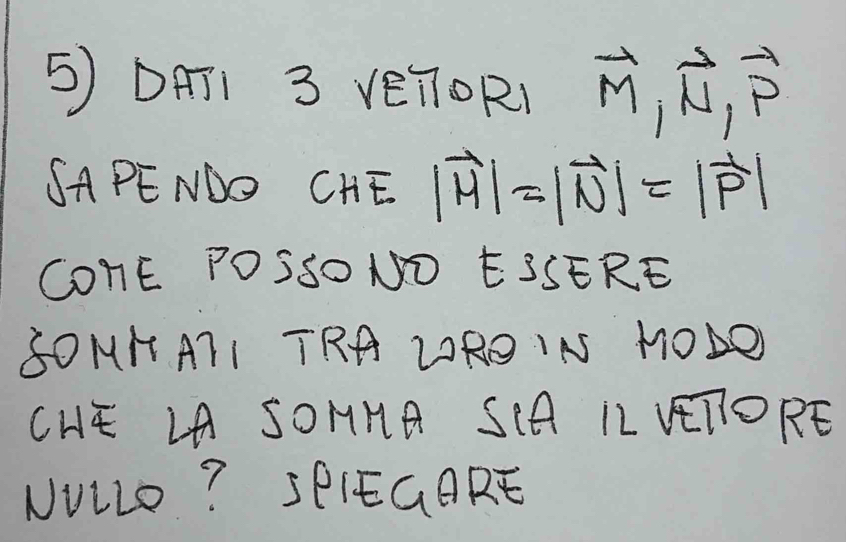 5) DATI 3 VETTORI M⃗, N⃗, P⃗
SAPENDO CHE |M⃗| = |N⃗| = |P⃗|
COME POSSONO ESSERE
SOMMATI TRA LORO IN MODO
CHE LA SOMMA SIA IL VETTORE
NULLO? SPIEGARE